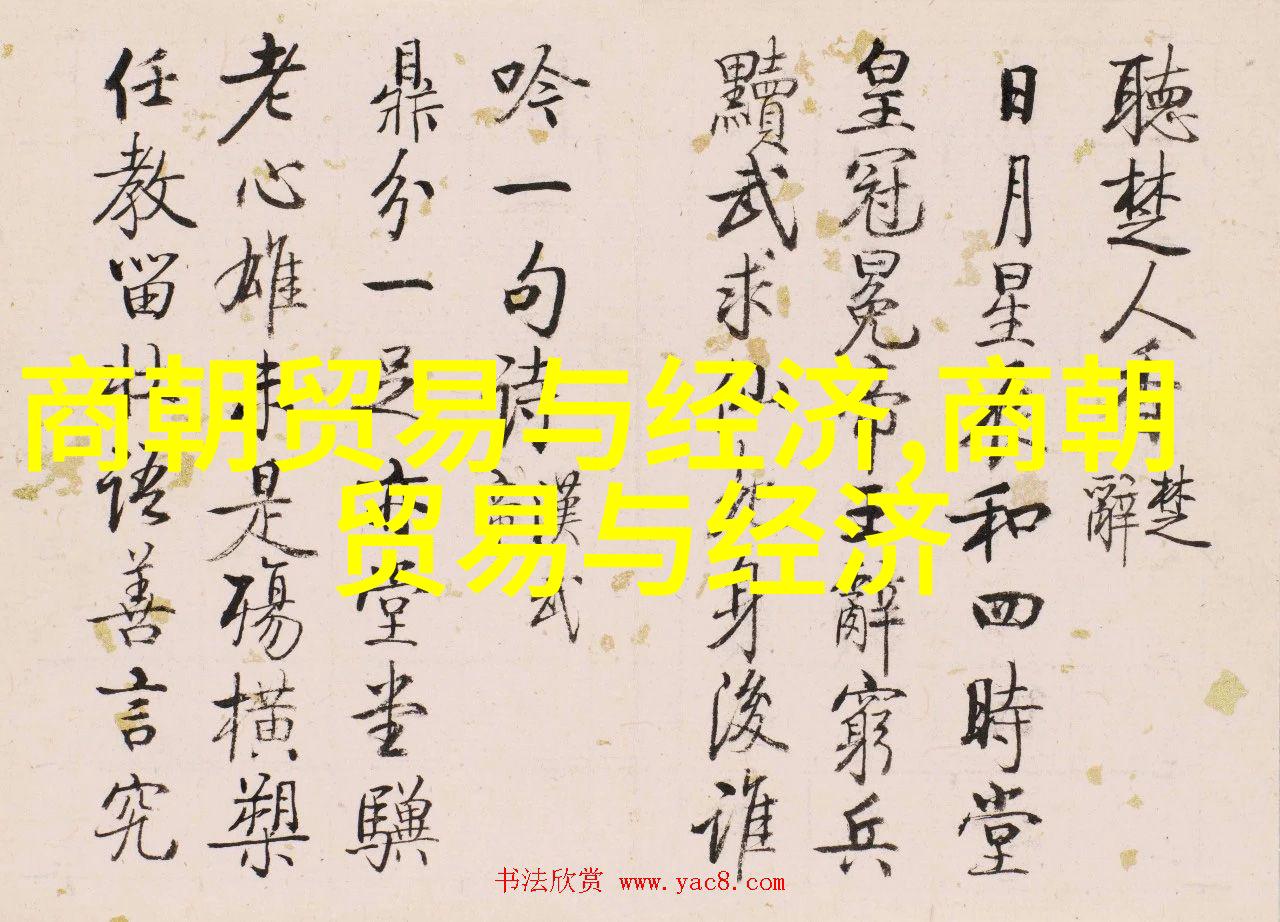 商朝贸易与经济,商朝
贸易与经济
聽楚人
楚辭
日月星和四時堂
皇冠冕帝王辭窮兵
黷武求仙身後誰
吟一句詩
漢武
鼎分一足亦堂堂驥
老心雄未是殤橫槊
任教留壯語善言究
书法欣赏 www.yac8.com